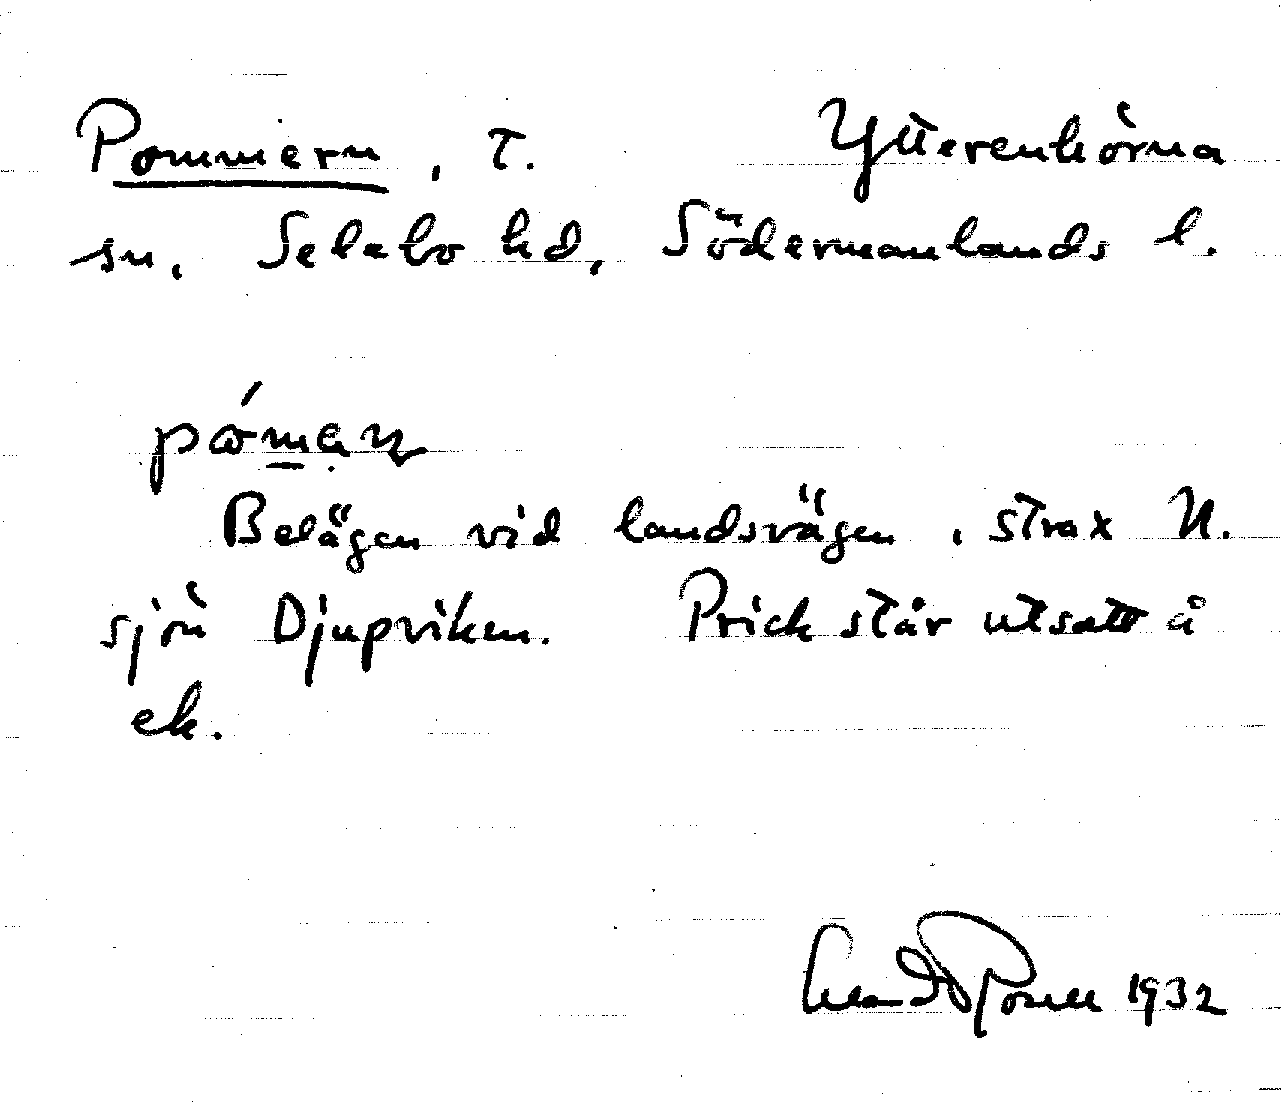 Pommern, T. Ytterenhörna
sn, Selebo hd, Södermanlands l.
Belägen vid landsvägen, strax N.
sjön Djupviken. Prick står utsatt å
ek.
1932